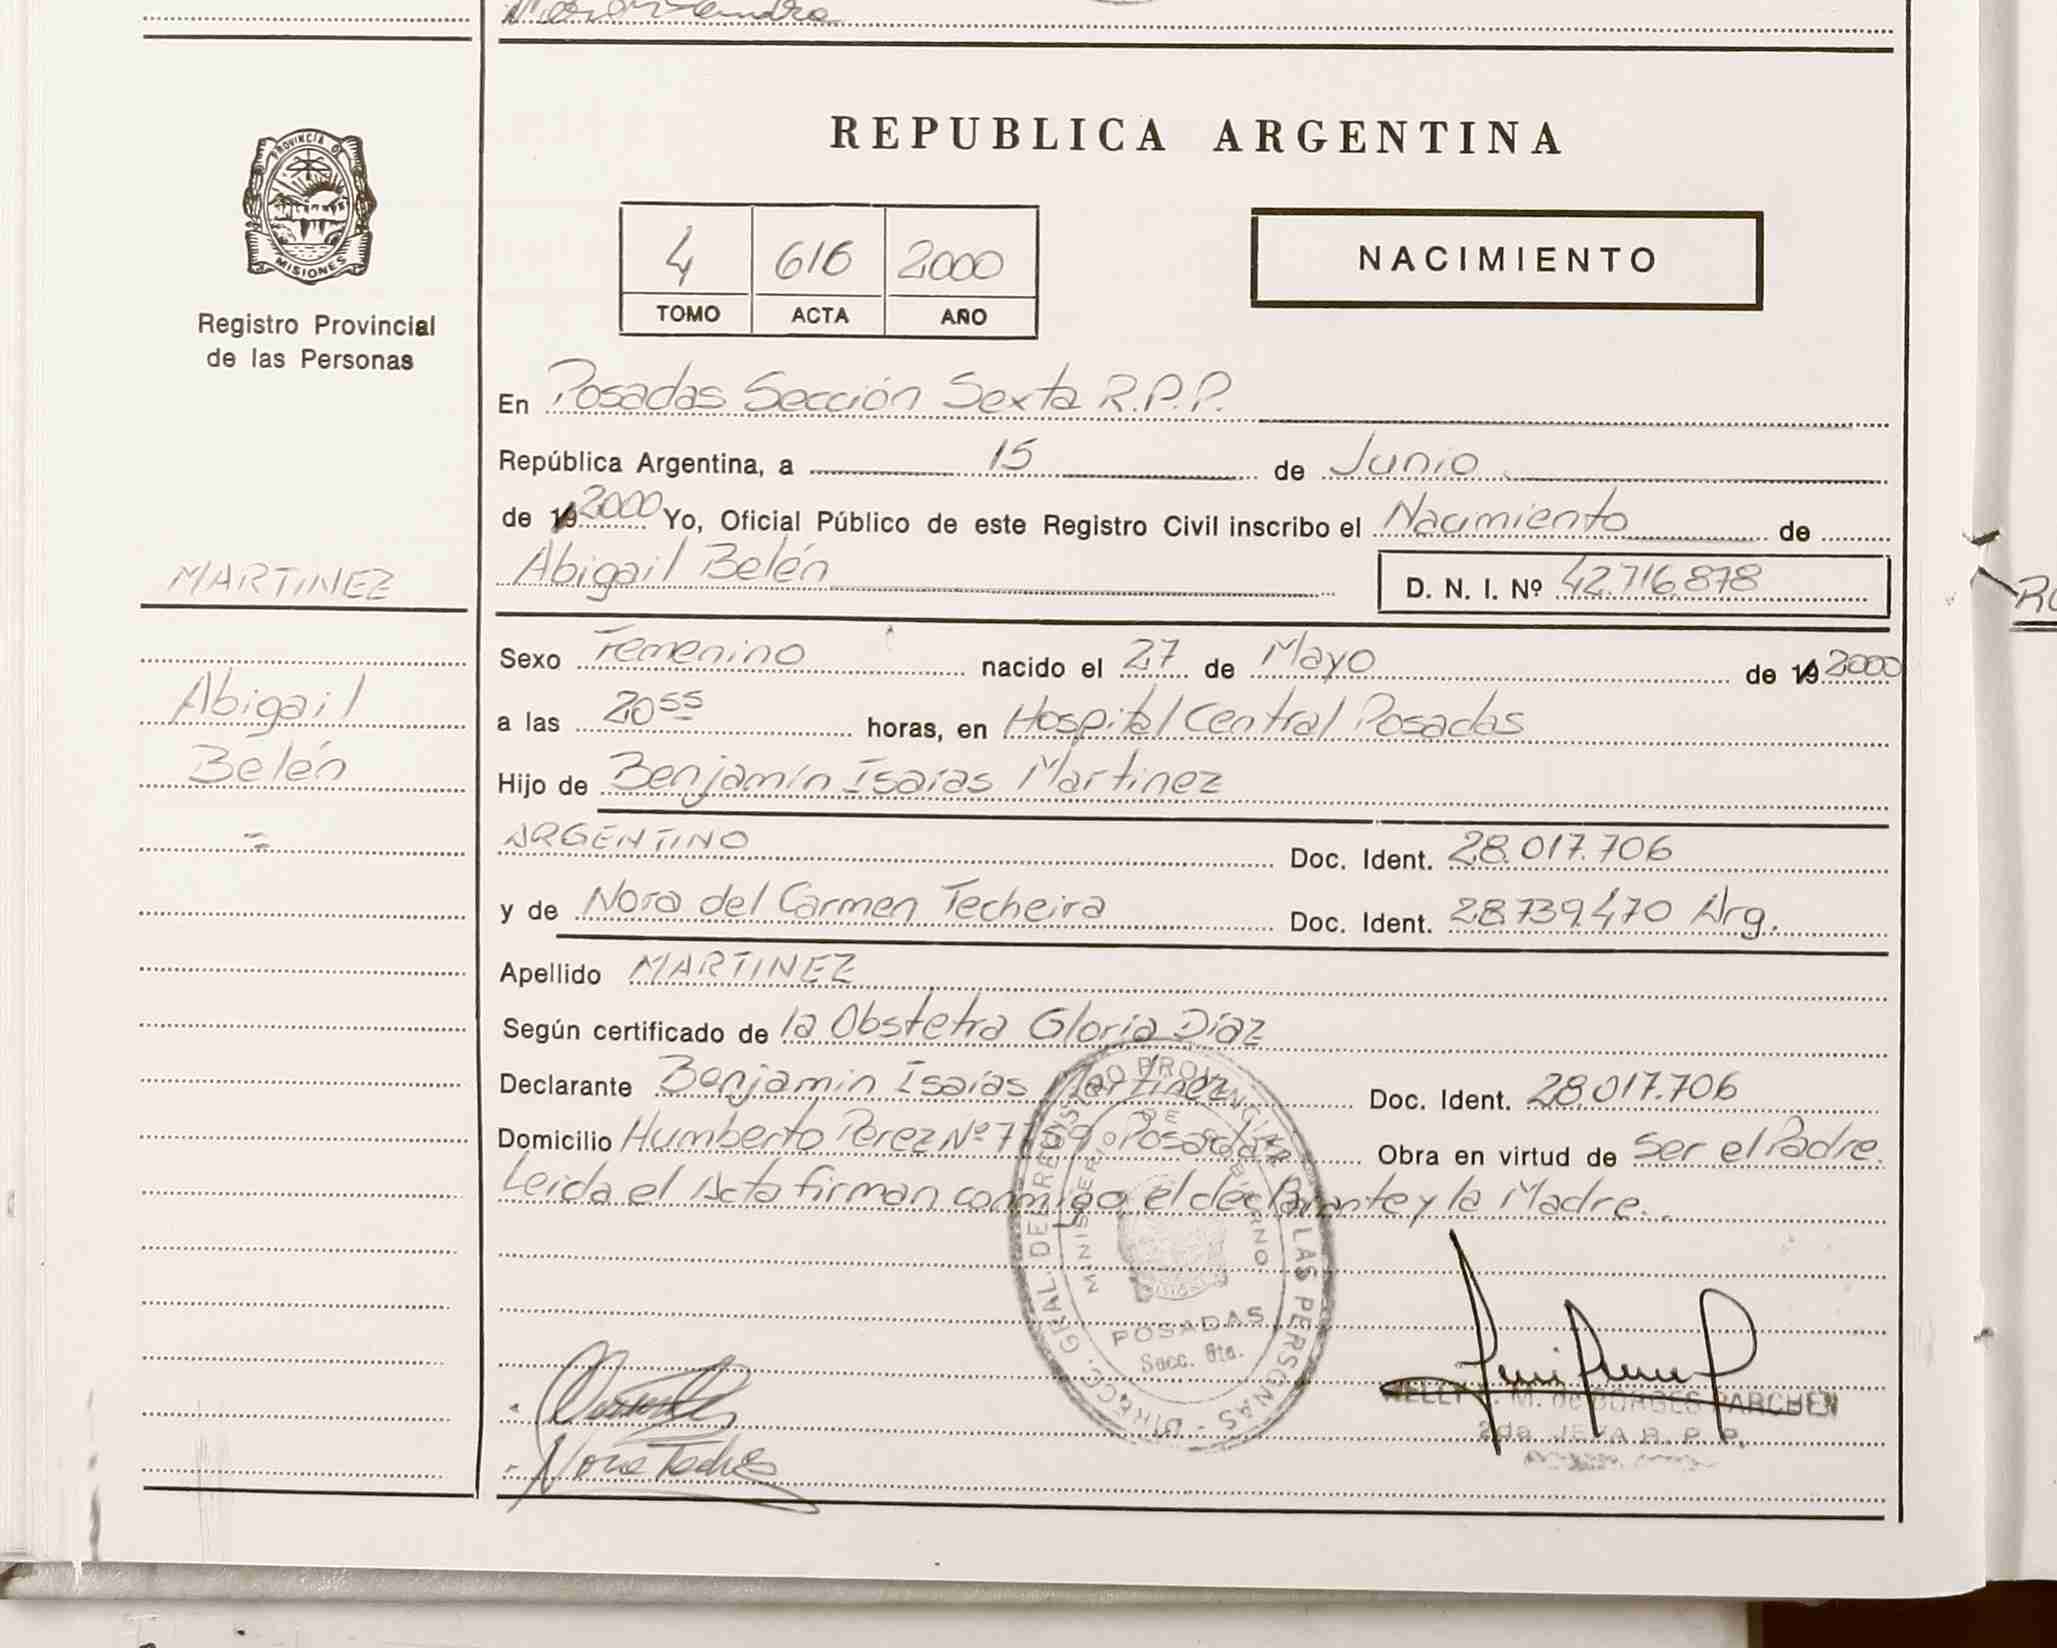 PROVINCIA D
MISIONES
Registro Provincial
de las Personas
MARTINEZ
Abigail
Belén
=
REPUBLICA ARGENTINA
4 616 2000
TOMO ACTA AÑO
NACIMIENTO
En Posadas Sección Sexta R.P.P.
República Argentina, a 15 de Junio
de 19 2000 Yo, Oficial Público de este Registro Civil inscribo el Nacimiento de
Abigail Belén D. N. I. Nº 42.716.878
Sexo Femenino nacido el 27 de Mayo de 19 2000
a las 20 55 horas, en Hospital Central Posadas
Hijo de Benjamín Isaías Martinez
ARGENTINO Doc. Ident. 28.017.706
y de Nora del Carmen Techeira Doc. Ident. 28.739.470 Arg.
Apellido MARTINEZ
Según certificado de la Obstetra Gloria Díaz
Declarante Benjamin Isaías Martinez Doc. Ident. 28.017.706
Domicilio Humberto Perez Nº Posadas Obra en virtud de Ser el Padre.
Leida el Acta firman conmigo el declarante y la Madre.
DIRECC. GRAL DE REGISTRO PROVINCIAL DE LAS PERSONAS
MINISTERIO DE GOBIERNO
POSADAS
Secc. 6ta.
Nora Teche
M. de BORGES PARCHEN
2da JEFA R. P. P.